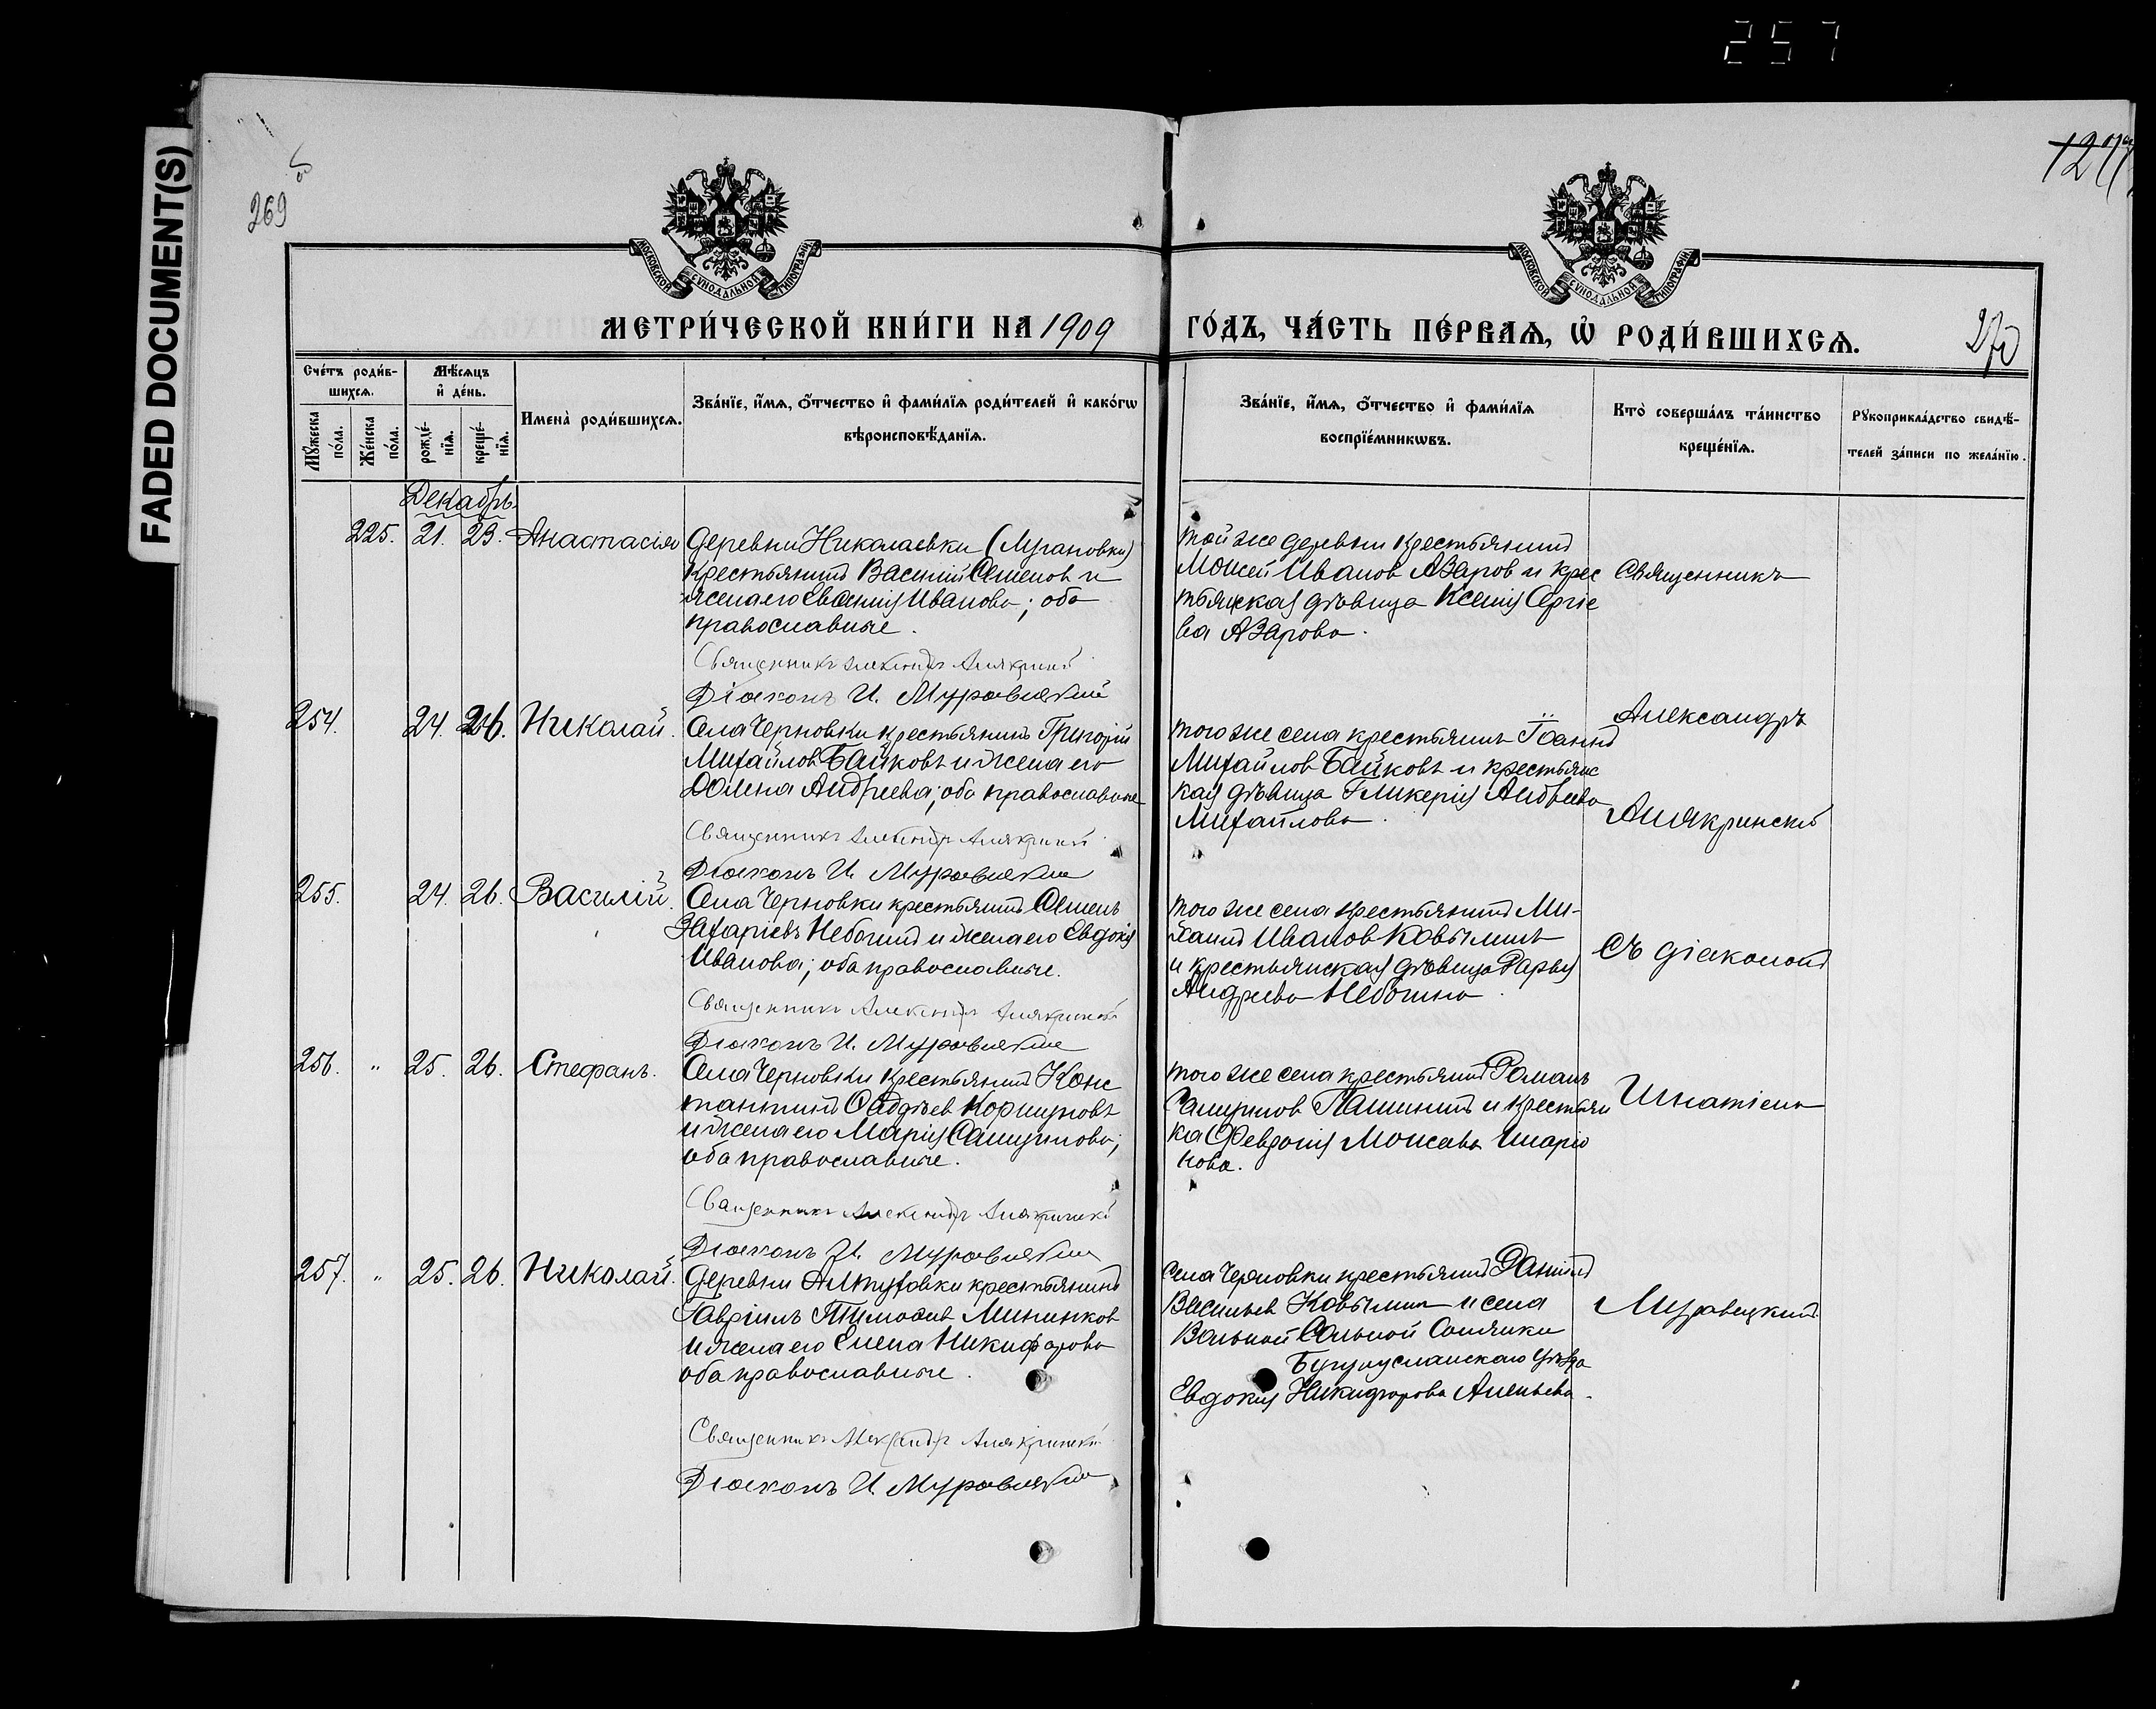 257
FADED DOCUMENT(S)
269
270
МОСКОВСКОЙ СУНОДАЛЬНОЙ ТИПОГРАФІИ
МОСКОВСКОЙ СУНОДАЛЬНОЙ ТИПОГРАФІИ
МЕТРИ́ЧЕСКОЙ КНИ́ГИ НА 1909 ГО́ДЪ, ЧА́СТЬ ПЕ́РВАѦ, Ѡ҆ РОДИ́ВШИХСѦ.
Сче́тъ роди́в-
шихсѧ.
Мꙋ́жеска
по́ла.
Же́нска
по́ла.
Мѣ́сѧцъ
и҆ де́нь.
рожде́-
нїѧ.
креще́-
нїѧ.
Имена̀ роди́вшихсѧ.
Зва́нїе, и҆́мѧ, ѻ҆́тчество и҆ фами́лїѧ роди́телей и҆ како́гѡ
вѣроисповѣ́данїѧ.
Зва́нїе, и҆́мѧ, ѻ҆́тчество и҆ фами́лїѧ
воспрїе́мникѡвъ.
Кто̀ соверша́лъ та́инство
креще́нїѧ.
Рꙋкоприкла́дство свидѣ́-
телей за́писи по жела́нїю.
Декабрь
225. 21. 23. Анастасія
Деревни Николаевки (Лугановки)
крестьянинъ Василій Семенов и
жена его Евгенія Иванова; оба
православные.
Священникъ Александръ Алякринскій
Діаконъ И. Муравецкій
той же деревни крестьянинъ
Моисей Иванов Азаров и крес
тьянская дѣвица Ксенія Сергіе
ва Азарова.
Священникъ
254. 24. 26. Николай.
Села Черновки крестьянинъ Григорій
Михайлов Байковъ и жена его
Андреева; оба православные
Священникъ Александръ Алякринскій
Діаконъ И. Муравецкій
того же села крестьянинъ Іоаннъ
Михайлов Байковъ и крестьянс
кая дѣвица Гликерія Андреева
Михайлова.
Александръ
Алякринскій
255. 24. 26. Василій.
Села Черновки крестьянинъ Семенъ
Захаріевъ Небогинъ и жена его Евдокія
Иванова; оба православные.
Священникъ Александръ Алякринскій
Діаконъ И. Муравецкій
того же села крестьянинъ Ми-
хаилъ Иванов Ковылинъ
и крестьянская дѣвица Дарья
Андреева Небогина.
съ діакономъ
256. " 25. 26. Стефанъ.
Села Черновки крестьянинъ Конс
тантинъ Коршуновъ
и жена его Марія Самуилова;
оба православные.
Священникъ Александръ Алякринскій
Діаконъ И. Муравецкій
того же села крестьянинъ Романъ
Самуилов Пашининъ и крестьян
ка Феврон­ія Моисеева Иларіо
нова.
Игнатіемъ
257. " 25. 26. Николай.
Деревни Алтуховки крестьянинъ
Гавріилъ Тимофеев Мининков
и жена его Елена Никифорова
оба православные.
Священникъ Александръ Алякринскій
Діаконъ И. Муравецкій
села Черновки крестьянинъ Даніилъ
Васильев Ковылин и села
Вольной Сольной Солянки
Бугурусланскаго уѣзда
Евдокія Никифорова
Муравецкимъ